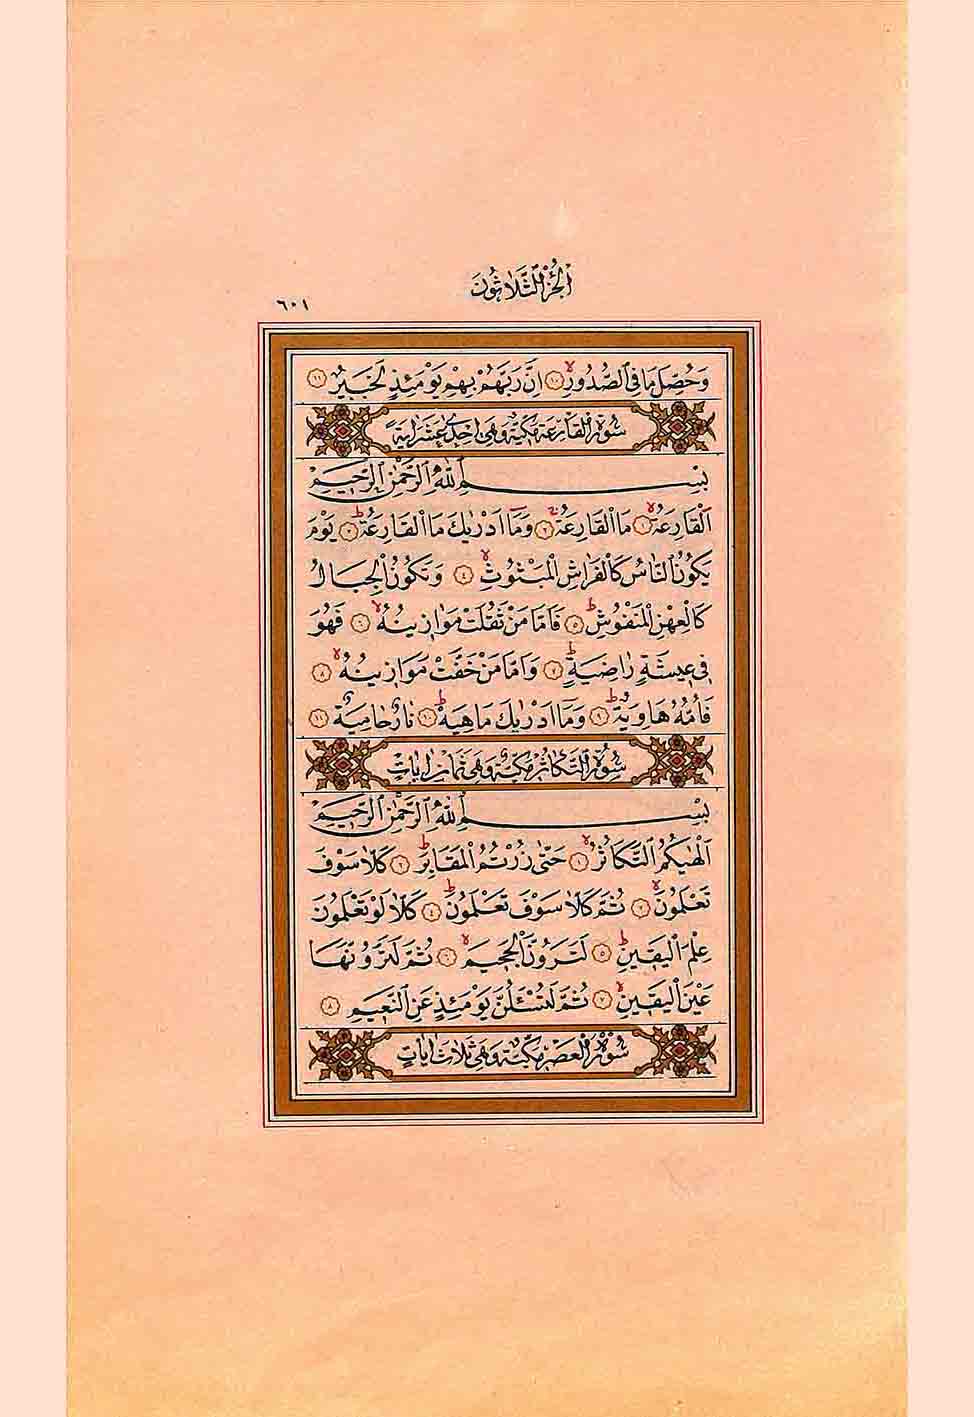 اَلْجُزْءُ الثَّلَاثُونَ
٦٠١
وَحُصِّلَ مَا فِي الصُّدُورِۙ ﴿١٠﴾ اِنَّ رَبَّهُمْ بِهِمْ يَوْمَئِذٍ لَخَبِيرٌ ﴿١١﴾
سُورَةُ الْقَارِعَةِ مَكِّيَّةٌ وَهِيَ اِحْدٰى عَشْرَةَ اٰيَةً
بِسْمِ اللّٰهِ الرَّحْمٰنِ الرَّحِيمِ
اَلْقَارِعَةُۙ ﴿١﴾ مَا الْقَارِعَةُۚ ﴿٢﴾ وَمَٓا اَدْرٰيكَ مَا الْقَارِعَةُۜ ﴿٣﴾ يَوْمَ
يَكُونُ النَّاسُ كَالْفَرَاشِ الْمَبْثُوثِۙ ﴿٤﴾ وَتَكُونُ الْجِبَالُ
كَالْعِهْنِ الْمَنْفُوشِۜ ﴿٥﴾ فَاَمَّا مَنْ ثَقُلَتْ مَوَازِينُهُۙ ﴿٦﴾ فَهُوَ
فِي عِيشَةٍ رَاضِيَةٍۜ ﴿٧﴾ وَاَمَّا مَنْ خَفَّتْ مَوَازِينُهُۙ ﴿٨﴾
فَاُمُّهُ هَاوِيَةٌۜ ﴿٩﴾ وَمَٓا اَدْرٰيكَ مَا هِيَهْۜ ﴿١٠﴾ نَارٌ حَامِيَةٌ ﴿١١﴾
سُورَةُ التَّكَاثُرِ مَكِّيَّةٌ وَهِيَ ثَمَانِ اٰيَاتٍ
بِسْمِ اللّٰهِ الرَّحْمٰنِ الرَّحِيمِ
اَلْهٰيكُمُ التَّكَاثُرُۙ ﴿١﴾ حَتّٰى زُرْتُمُ الْمَقَابِرَۜ ﴿٢﴾ كَلَّا سَوْفَ
تَعْلَمُونَۙ ﴿٣﴾ ثُمَّ كَلَّا سَوْفَ تَعْلَمُونَۜ ﴿٤﴾ كَلَّا لَوْ تَعْلَمُونَ
عِلْمَ الْيَقِينِۜ ﴿٥﴾ لَتَرَوُنَّ الْجَحِيمَۙ ﴿٦﴾ ثُمَّ لَتَرَوُنَّهَا
عَيْنَ الْيَقِينِۙ ﴿٧﴾ ثُمَّ لَتُسْـَٔلُنَّ يَوْمَئِذٍ عَنِ النَّعِيمِ ﴿٨﴾
سُورَةُ الْعَصْرِ مَكِّيَّةٌ وَهِيَ ثَلَاثُ اٰيَاتٍ